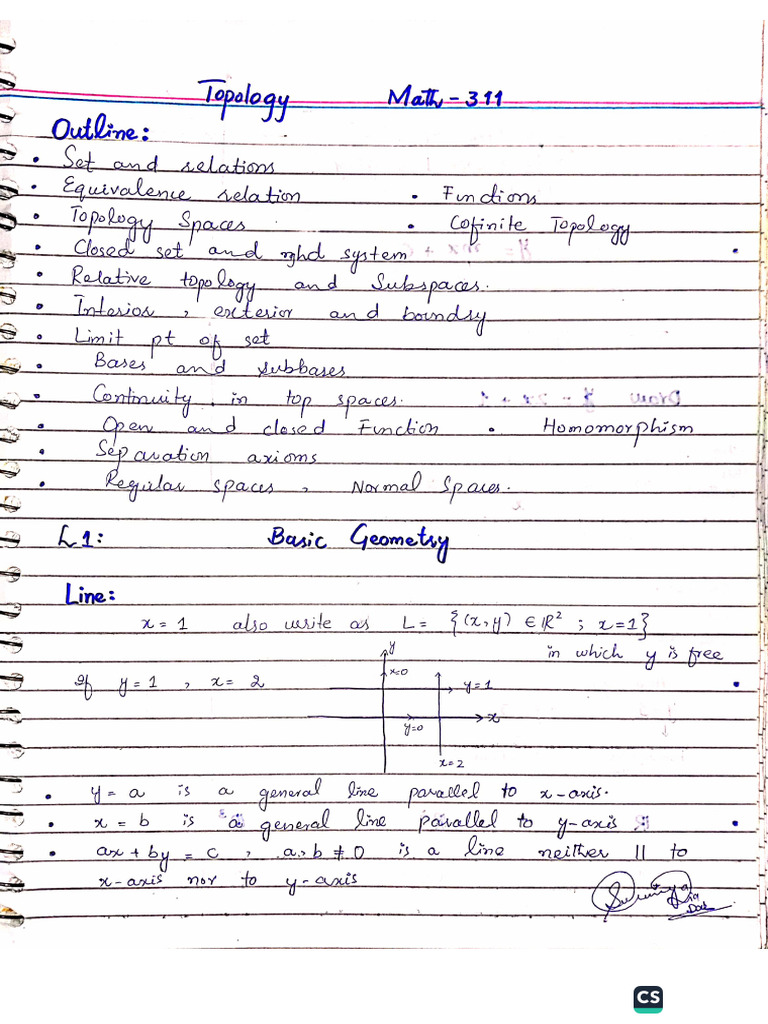 Topology Math-311
Outline:
• Set and relations
• Equivalence relation • Functions
• Topology Spaces • Cofinite Topology
• Closed set and nghd system
• Relative topology and Subspaces.
• Interior, exterior and boundry
• Limit pt of set
• Bases and subbases
• Continuity in top spaces.
• Open and closed Function • Homomorphism
• Separation axioms
• Regular spaces, Normal Spaces.
L1: Basic Geometry
Line:
x = 1 also write as L = {(x,y) ∈ ℝ² ; x=1}
in which y is free
If y = 1 , x = 2
y
x=0
y=1
x
y=0
x=2
• y = a is a general line parallel to x-axis.
• x = b is a general line parallel to y-axis
• ax + by = c , a, b ≠ 0 is a line neither || to
x-axis nor to y-axis
CS